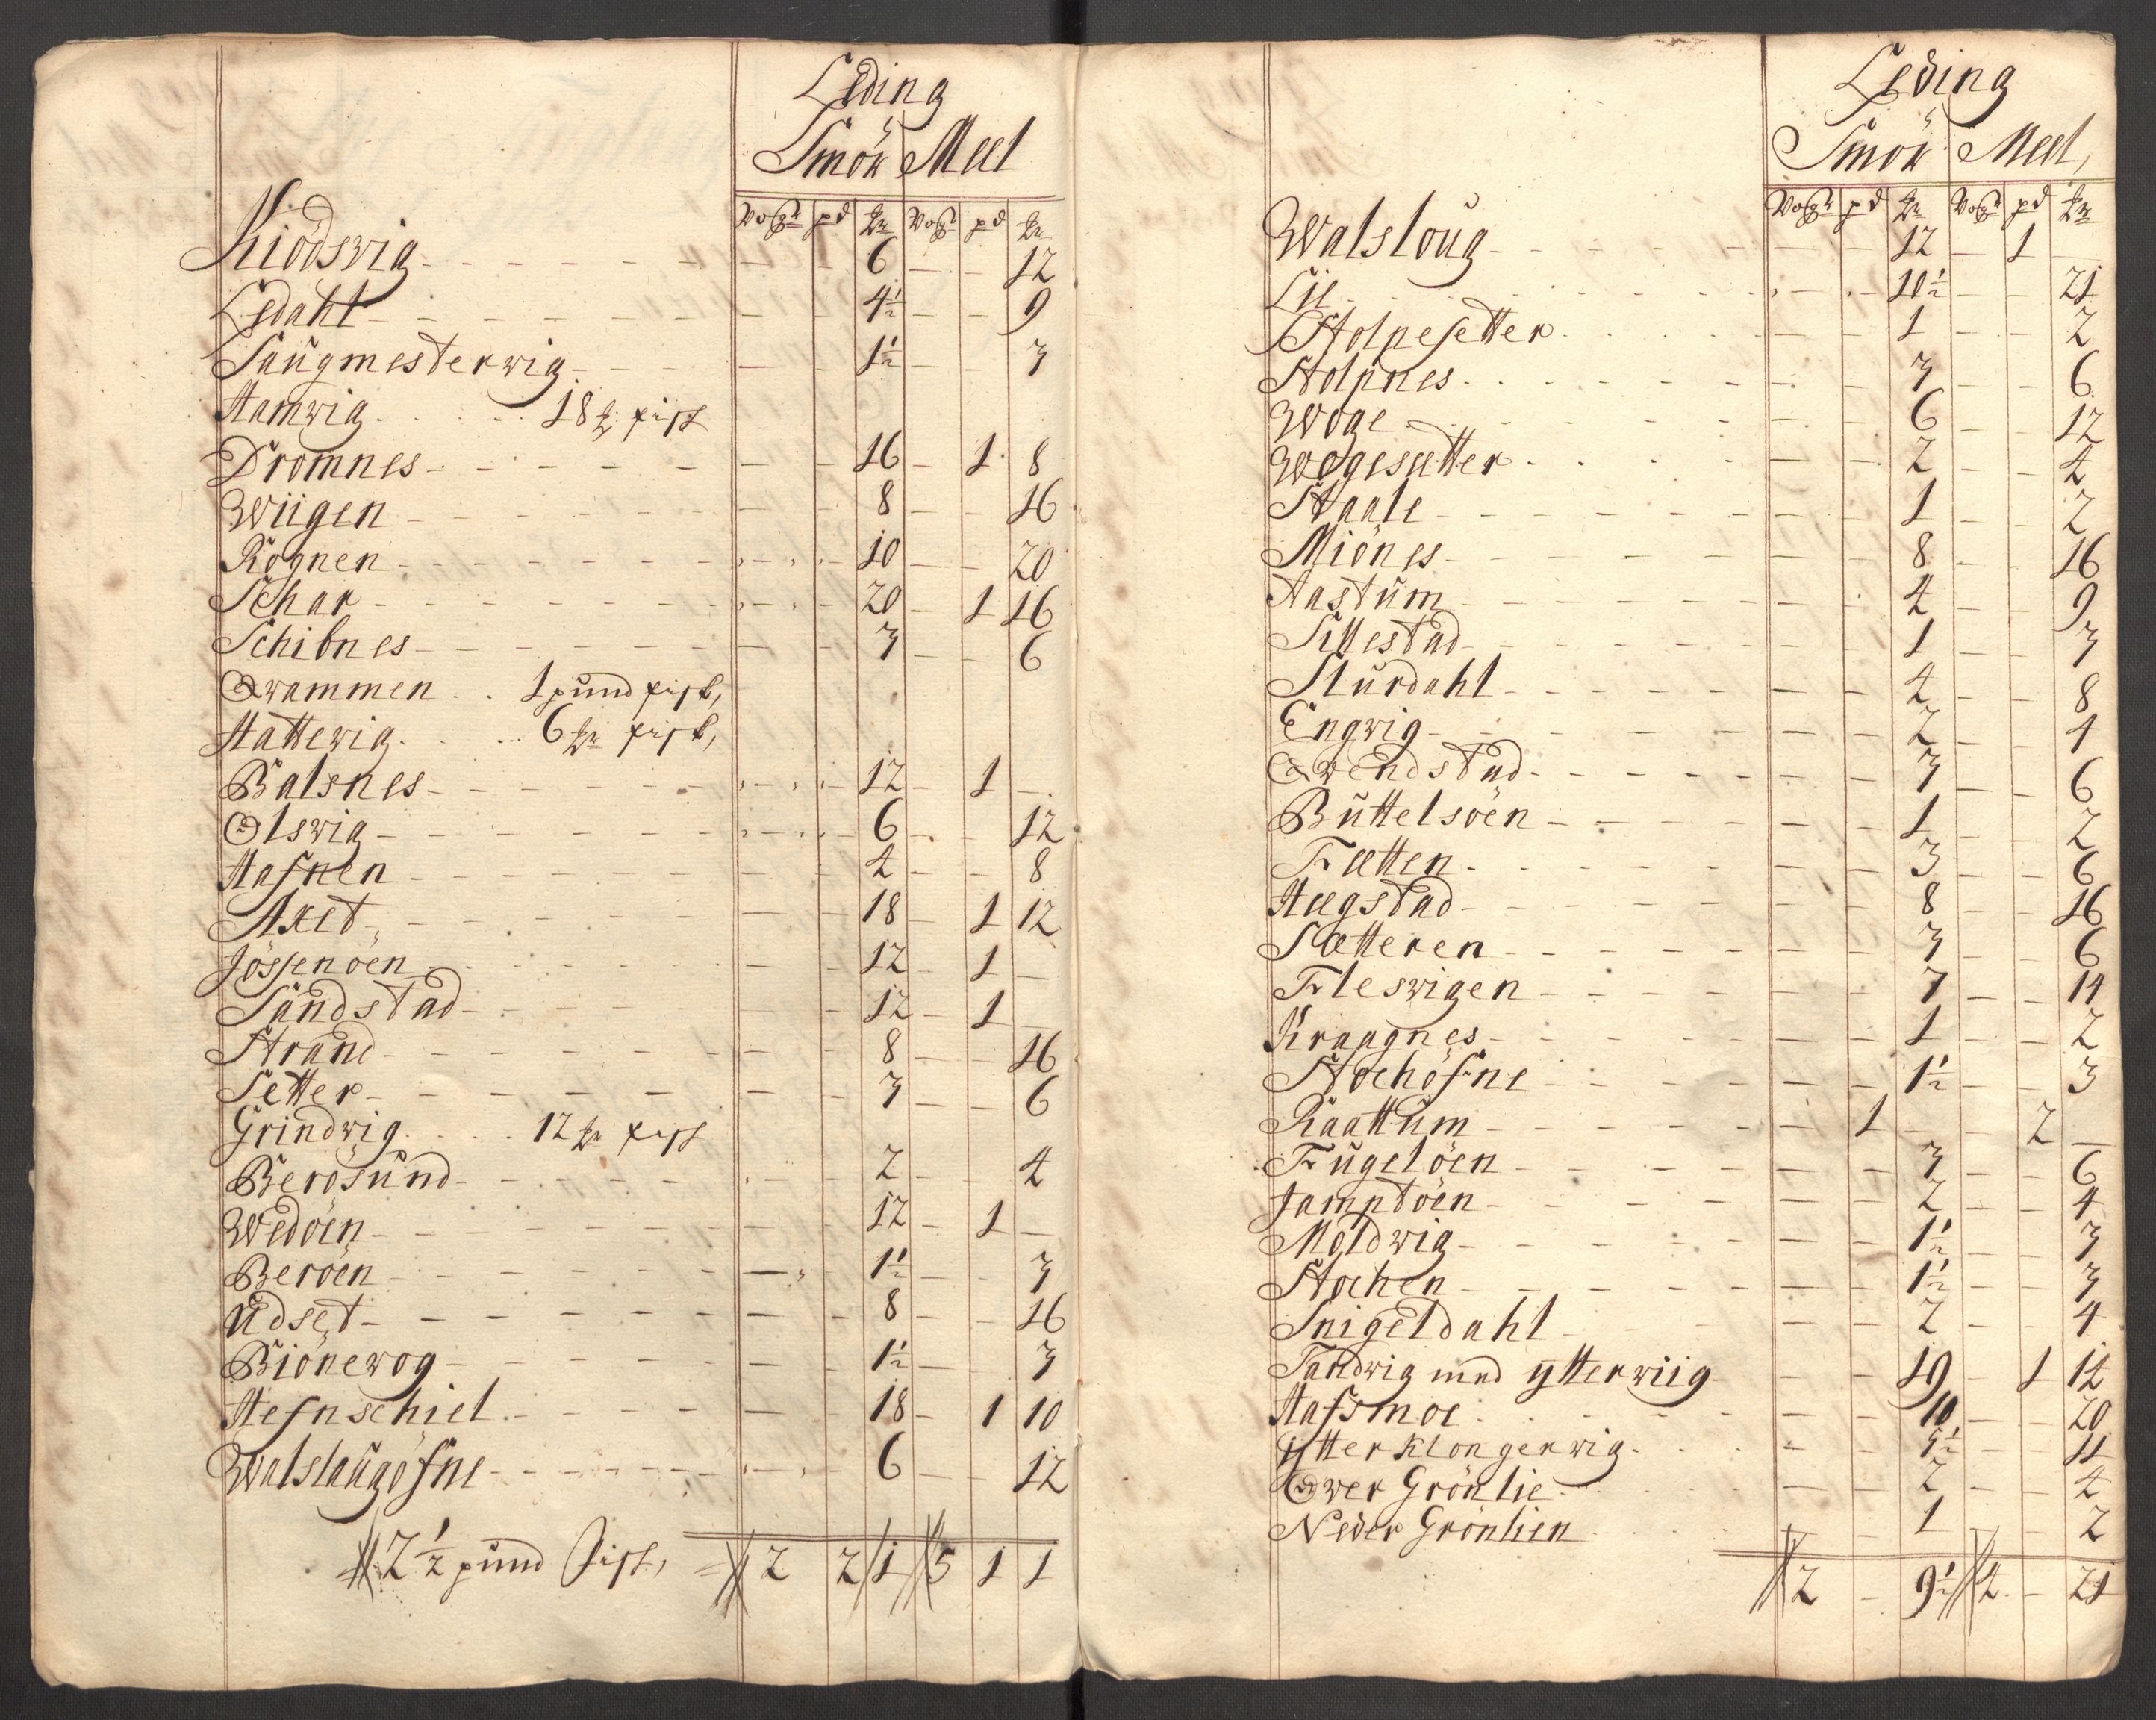 Leding
Smör Meel
Wog pd ℔ Wog pd ℔
Kiödswig - - 6 - - 12
Ledahl - - 4½ - - 9
Saugmesterwig - - 1½ - - 3
Hamwig 18 ℔ fisk
Dromnes - - 16 - 1 8
Wiigen - - 8 - - 16
Rognen - - 10 - - 20
Schar - - 20 - 1 16
Schibnes - - 3 - - 6
Qwammen 1 pund fisk,
Hattewig 6 ℔ fisk,
Balsnes - - 12 - 1 -
Olswig - - 6 - - 12
Hafnen - - 4 - - 8
Axet - - 18 - 1 12
Jössenöen - - 12 - 1 -
Sandstad - - 12 - 1 -
Strand - - 8 - - 16
Setter - - 3 - - 6
Grindwig 12 ℔ fisk
Berösund - - 2 - - 4
Wedöen - - 12 - 1 -
Beröen - - 1½ - - 3
Udset - - 8 - - 16
Biönewog - - 1½ - - 3
Hefnschiel - - 18 - 1 10
Walslaugöfne - - 6 - - 12
2½ pund Fisk, 2 2 1 5 1 1
Leding
Smör Meel,
Wog pd ℔ Wog pd ℔
Walsloug - - 12 - 1 -
Lie - - 10½ - - 21
Stolpesetter - - 1 - - 2
Stolpnes - - 3 - - 6
Woge - - 6 - - 12
Wogesætter - - 2 - - 4
Staale - - 1 - - 2
Miönes - - 8 - - 16
Aastum - - 4 - - 9
Sillestad - - 1 - - 3
Slurdahl - - 4 - - 8
Engwig - - 2 - - 4
Qwendstad - - 3 - - 6
Buttelsöen - - 1 - - 2
Fætten - - 3 - - 6
Hægstad - - 8 - - 16
Sætteren - - 3 - - 6
Fleswigen - - 7 - - 14
Kraagnes - - 1 - - 2
Stochöfne - - 1½ - - 3
Raattum - 1 - - 2 -
Fugelöen - - 3 - - 6
Jamptöen - - 2 - - 4
Moldwig - - 1½ - - 3
Stochen - - 1½ - - 3
Snigeldahl - - 2 - - 4
Tandwig med ytterwiig - - 19 - 1 14
Hafsmoe - - 10 - - 20
ytterklongerwig - - 5½ - - 11
Ower Grönlie - - 2 - - 4
Neder Grönlien - - 1 - - 2
2 - 9½ 4 - 21